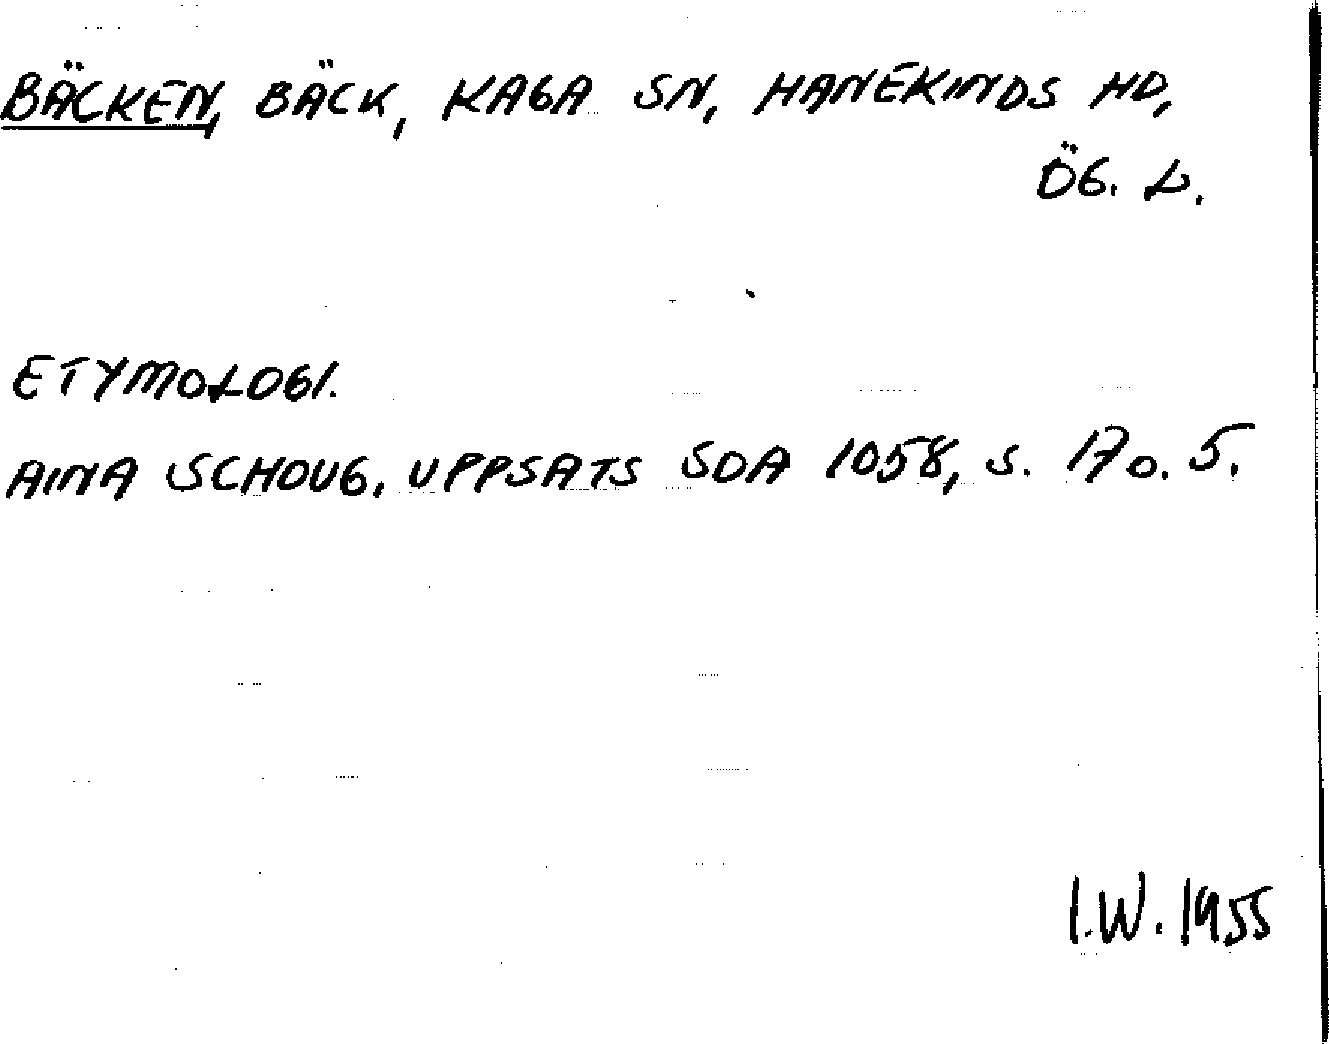 BÄCKEN, BÄCK, KAGA SN, HANEKINDS HD,
ÖG. L.
ETYMOLOGI.
AINA SCHOUG, UPPSATS SOA 1058, S. 17 o. 5.
I.W. 1955